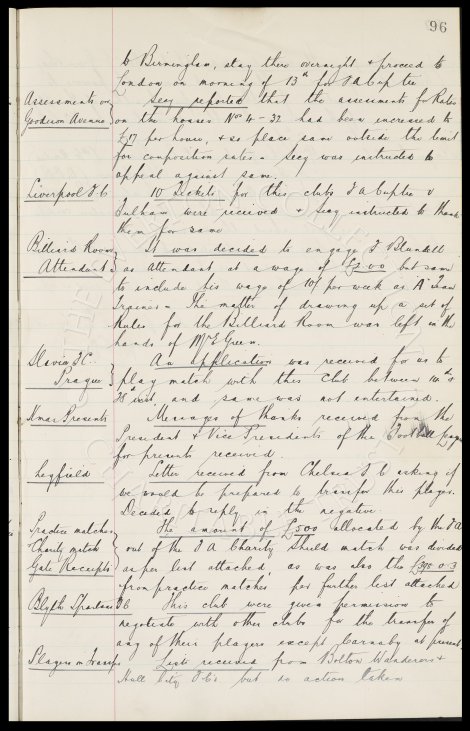 96
to Birmingham, stay there overnight & proceed to
London on morning of 13th for F A Cup tie
Assessments on Goodison Avenue
Secy reported that the assessments for Rates
on the houses Nos 4 - 32 had been increased to
£17 per house, & so place same outside the limit
for composition rates - Secy was instructed to
appeal against same.
Liverpool F. C
10 Tickets for this clubs F A Cup tie v
Fulham were received & Secy instructed to thank
them for same
Billiard Room Attendant
It was decided to engage J Blundell
as attendant at a wage of but same
to include his wage of 10/ per week as A Team
Trainer - The matter of drawing up a set of
Rules for the Billiard Room was left in the
hands of Mr Green.
Slavia F C. Prague
An application was received for us to
play match with this Club between 14th &
inst, and same was not entertained.
Xmas Presents
Messages of thanks received from the
President & Vice Presidents of the Football League
for presents received.
Letter received from Chelsea F C asking if
we would be prepared to transfer this player.
Decided to reply in the negative.
Practice matches Charity match Gate Receipts
The amount of £500 allocated by the F A
out of the F A Charity Shield match was divided
as per list attached, as was also the
from practice matches per further list attached
Blyth Spartans F C
This club were given permission to
negotiate with other clubs for the transfer of
any of their players except Barnaby at present
Players in Transfer
Lists received from Bolton Wanderers &
Hull City F. C's but no action taken